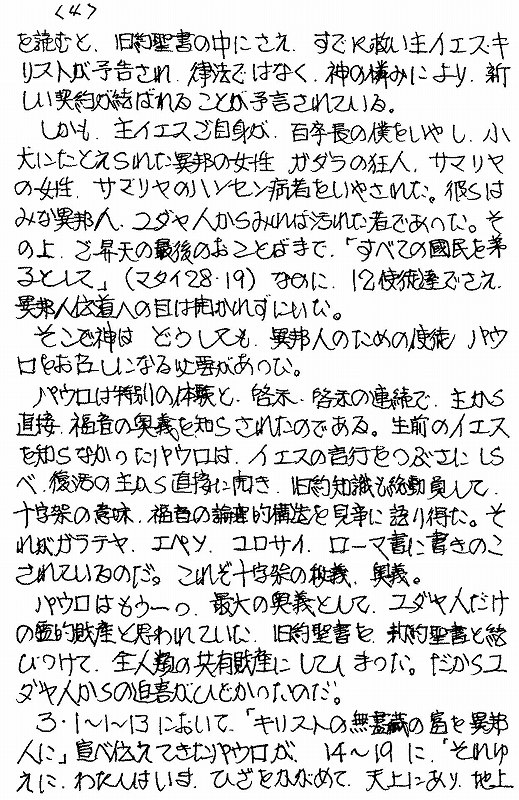 〈4〉
を読むと、旧約聖書の中にさえ、すでに救い主イエス・キ
リストが予告され、律法ではなく、神の憐みにより、新
しい契約が結ばれることが予言されている。
しかも、主イエスご自身が、百卒長の僕をいやし、小
犬にたとえられた異邦の女性、ガダラの狂人、サマリヤ
の女性、サマリヤのハンセン病者をいやされた。彼らは
みな異邦人、ユダヤ人からみれば汚れた者であった。そ
の上、ご昇天の最後のおことばまで、「すべての國民を弟
子として」(マタイ28・19)なのに、12使徒達でさえ、
異邦人伝道への目は開かれずにいた。
そこで神は どうしても、異邦人のための使徒 パウ
ロをお召しになる必要があった。
パウロは特別の体験と、啓示・啓示の連続で、主から
直接、福音の奥義を知らされたのである。生前のイエス
を知らなかったパウロは、イエスの言行をつぶさにしら
べ、復活の主から直接に聞き、旧約知識も総動員して、
十字架の意味、福音の論理的構造を見事に語り得た。そ
れがガラテヤ、エペソ、コロサイ、ローマ書に書きのこ
されているのだ。これぞ十字架の秘義、奥義。
パウロはもう一つ、最大の奥義として、ユダヤ人だけ
の霊的財産と思われていた、旧約聖書を、新約聖書と結
びつけて、全人類の共有財産にしてしまった。だからユ
ダヤ人からの迫害がひどかったのだ。
3・1~1~13において、「キリストの無尽蔵の富を異邦
人に」宣べ伝えてきたパウロが、14~19に、「それゆ
えに、わたしはいま、ひざをかがめて、天上にあり、地上